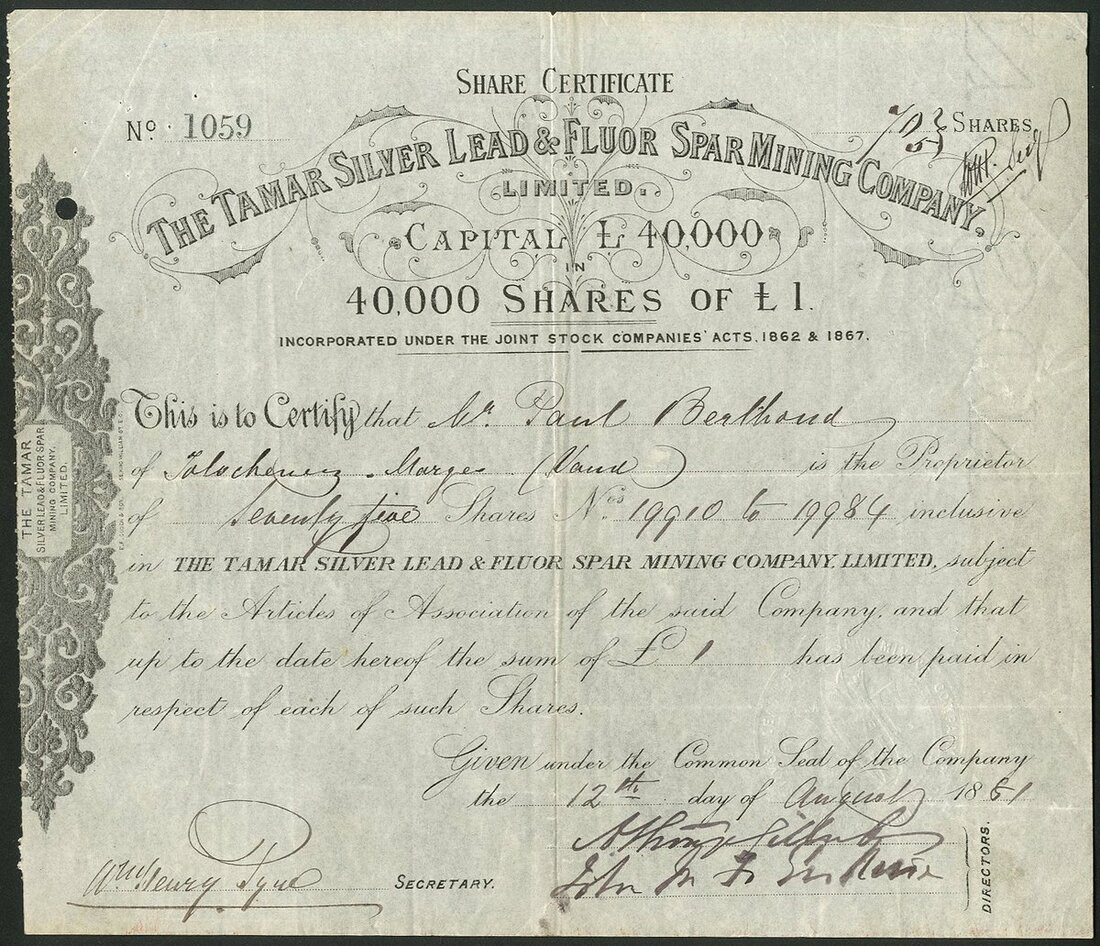 SHARE CERTIFICATE
No. 1059
75 SHARES
THE TAMAR SILVER LEAD & FLUOR SPAR MINING COMPANY.
LIMITED.
CAPITAL £ 40,000
IN
40,000 SHARES OF £ 1.
INCORPORATED UNDER THE JOINT STOCK COMPANIES' ACTS, 1862 & 1867.
This is to Certify that Mr. Paul Berthoud
of Tolochenaz - Morges (Vaud) is the Proprietor
of Seventy five Shares Nos. 19910 to 19984 inclusive
in THE TAMAR SILVER LEAD & FLUOR SPAR MINING COMPANY. LIMITED, subject
to the Articles of Association of the said Company, and that
up to the date hereof the sum of £ 1 has been paid in
respect of each of such Shares.
Given under the Common Seal of the Company
the 12th day of August 1881
Wm Henry Pyne SECRETARY.
DIRECTORS.
THE TAMAR
SILVER LEAD & FLUOR SPAR
MINING COMPANY.
LIMITED.